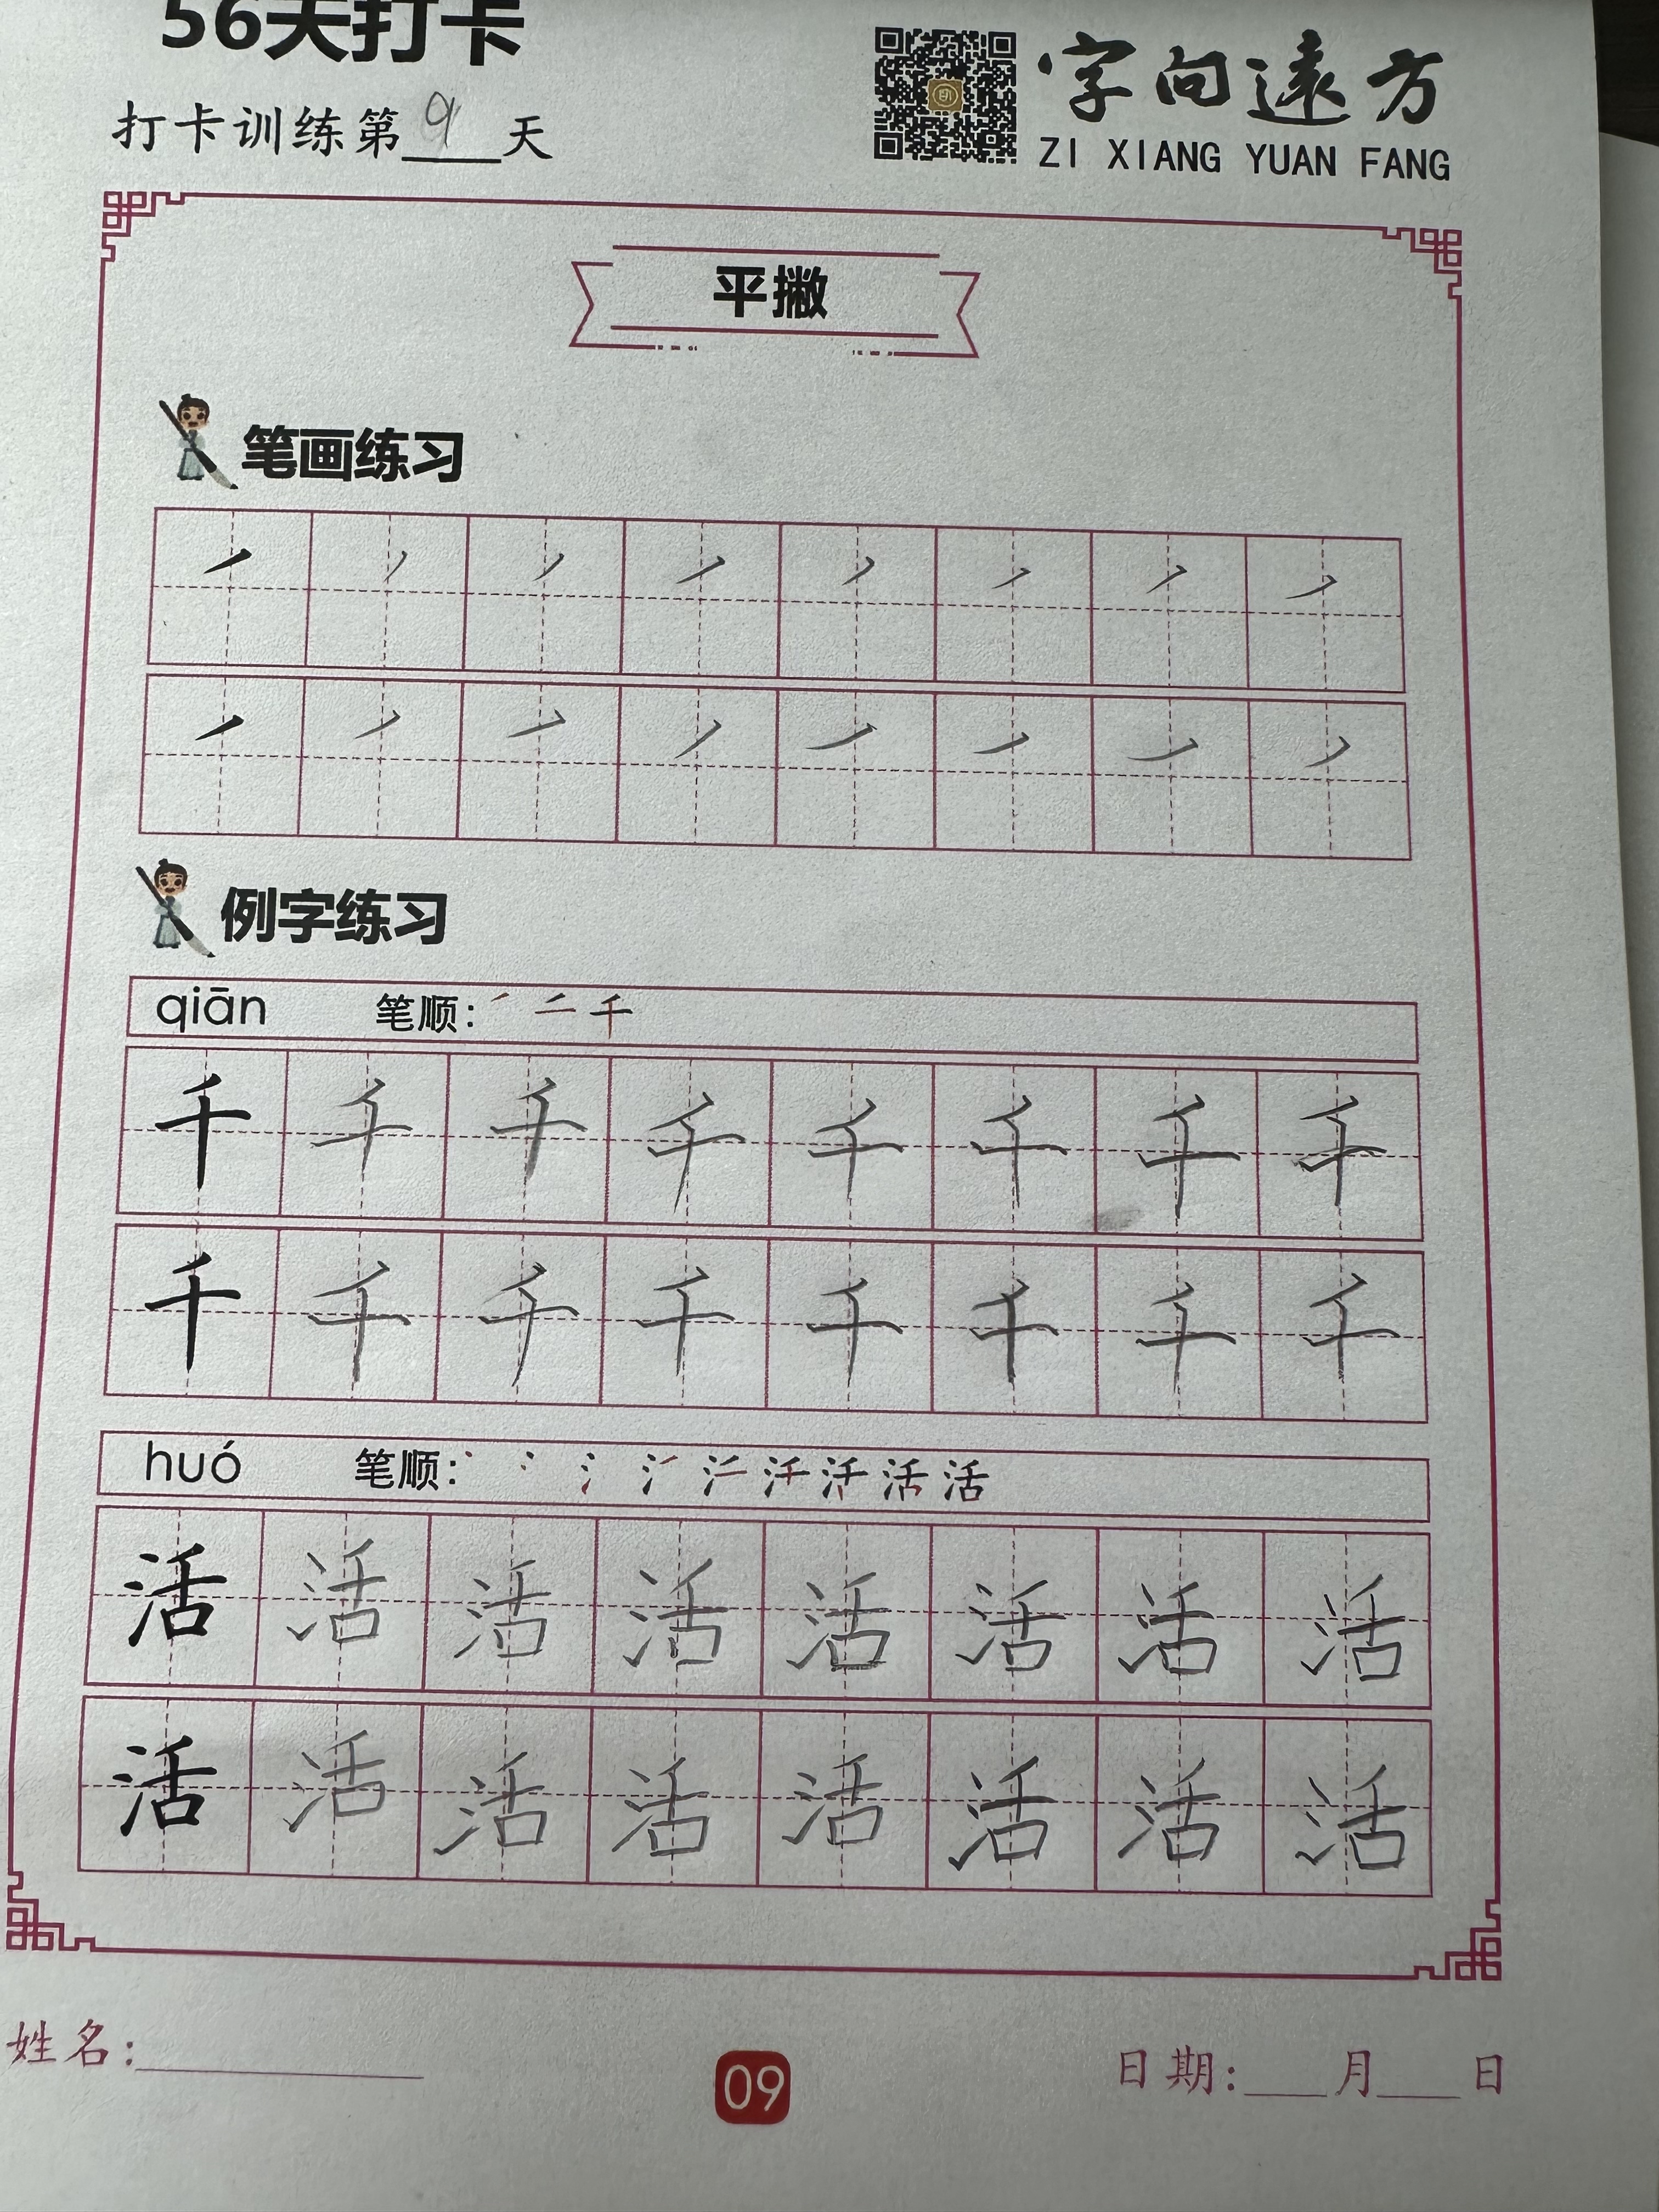 56天打卡
打卡训练第9天
字向遠方
ZI XIANG YUAN FANG
平撇
笔画练习
㇒ ㇒ ㇒ ㇒ ㇒ ㇒ ㇒ ㇒
㇒ ㇒ ㇒ ㇒ ㇒ ㇒ ㇒ ㇒
例字练习
qiān 笔顺: ㇒ 二 千
千 千 千 千 千 千 千 千
千 千 千 千 千 千 千 千
huó 笔顺: 活
活 活 活 活 活 活 活 活
活 活 活 活 活 活 活 活
姓名:
09
日期: 月 日